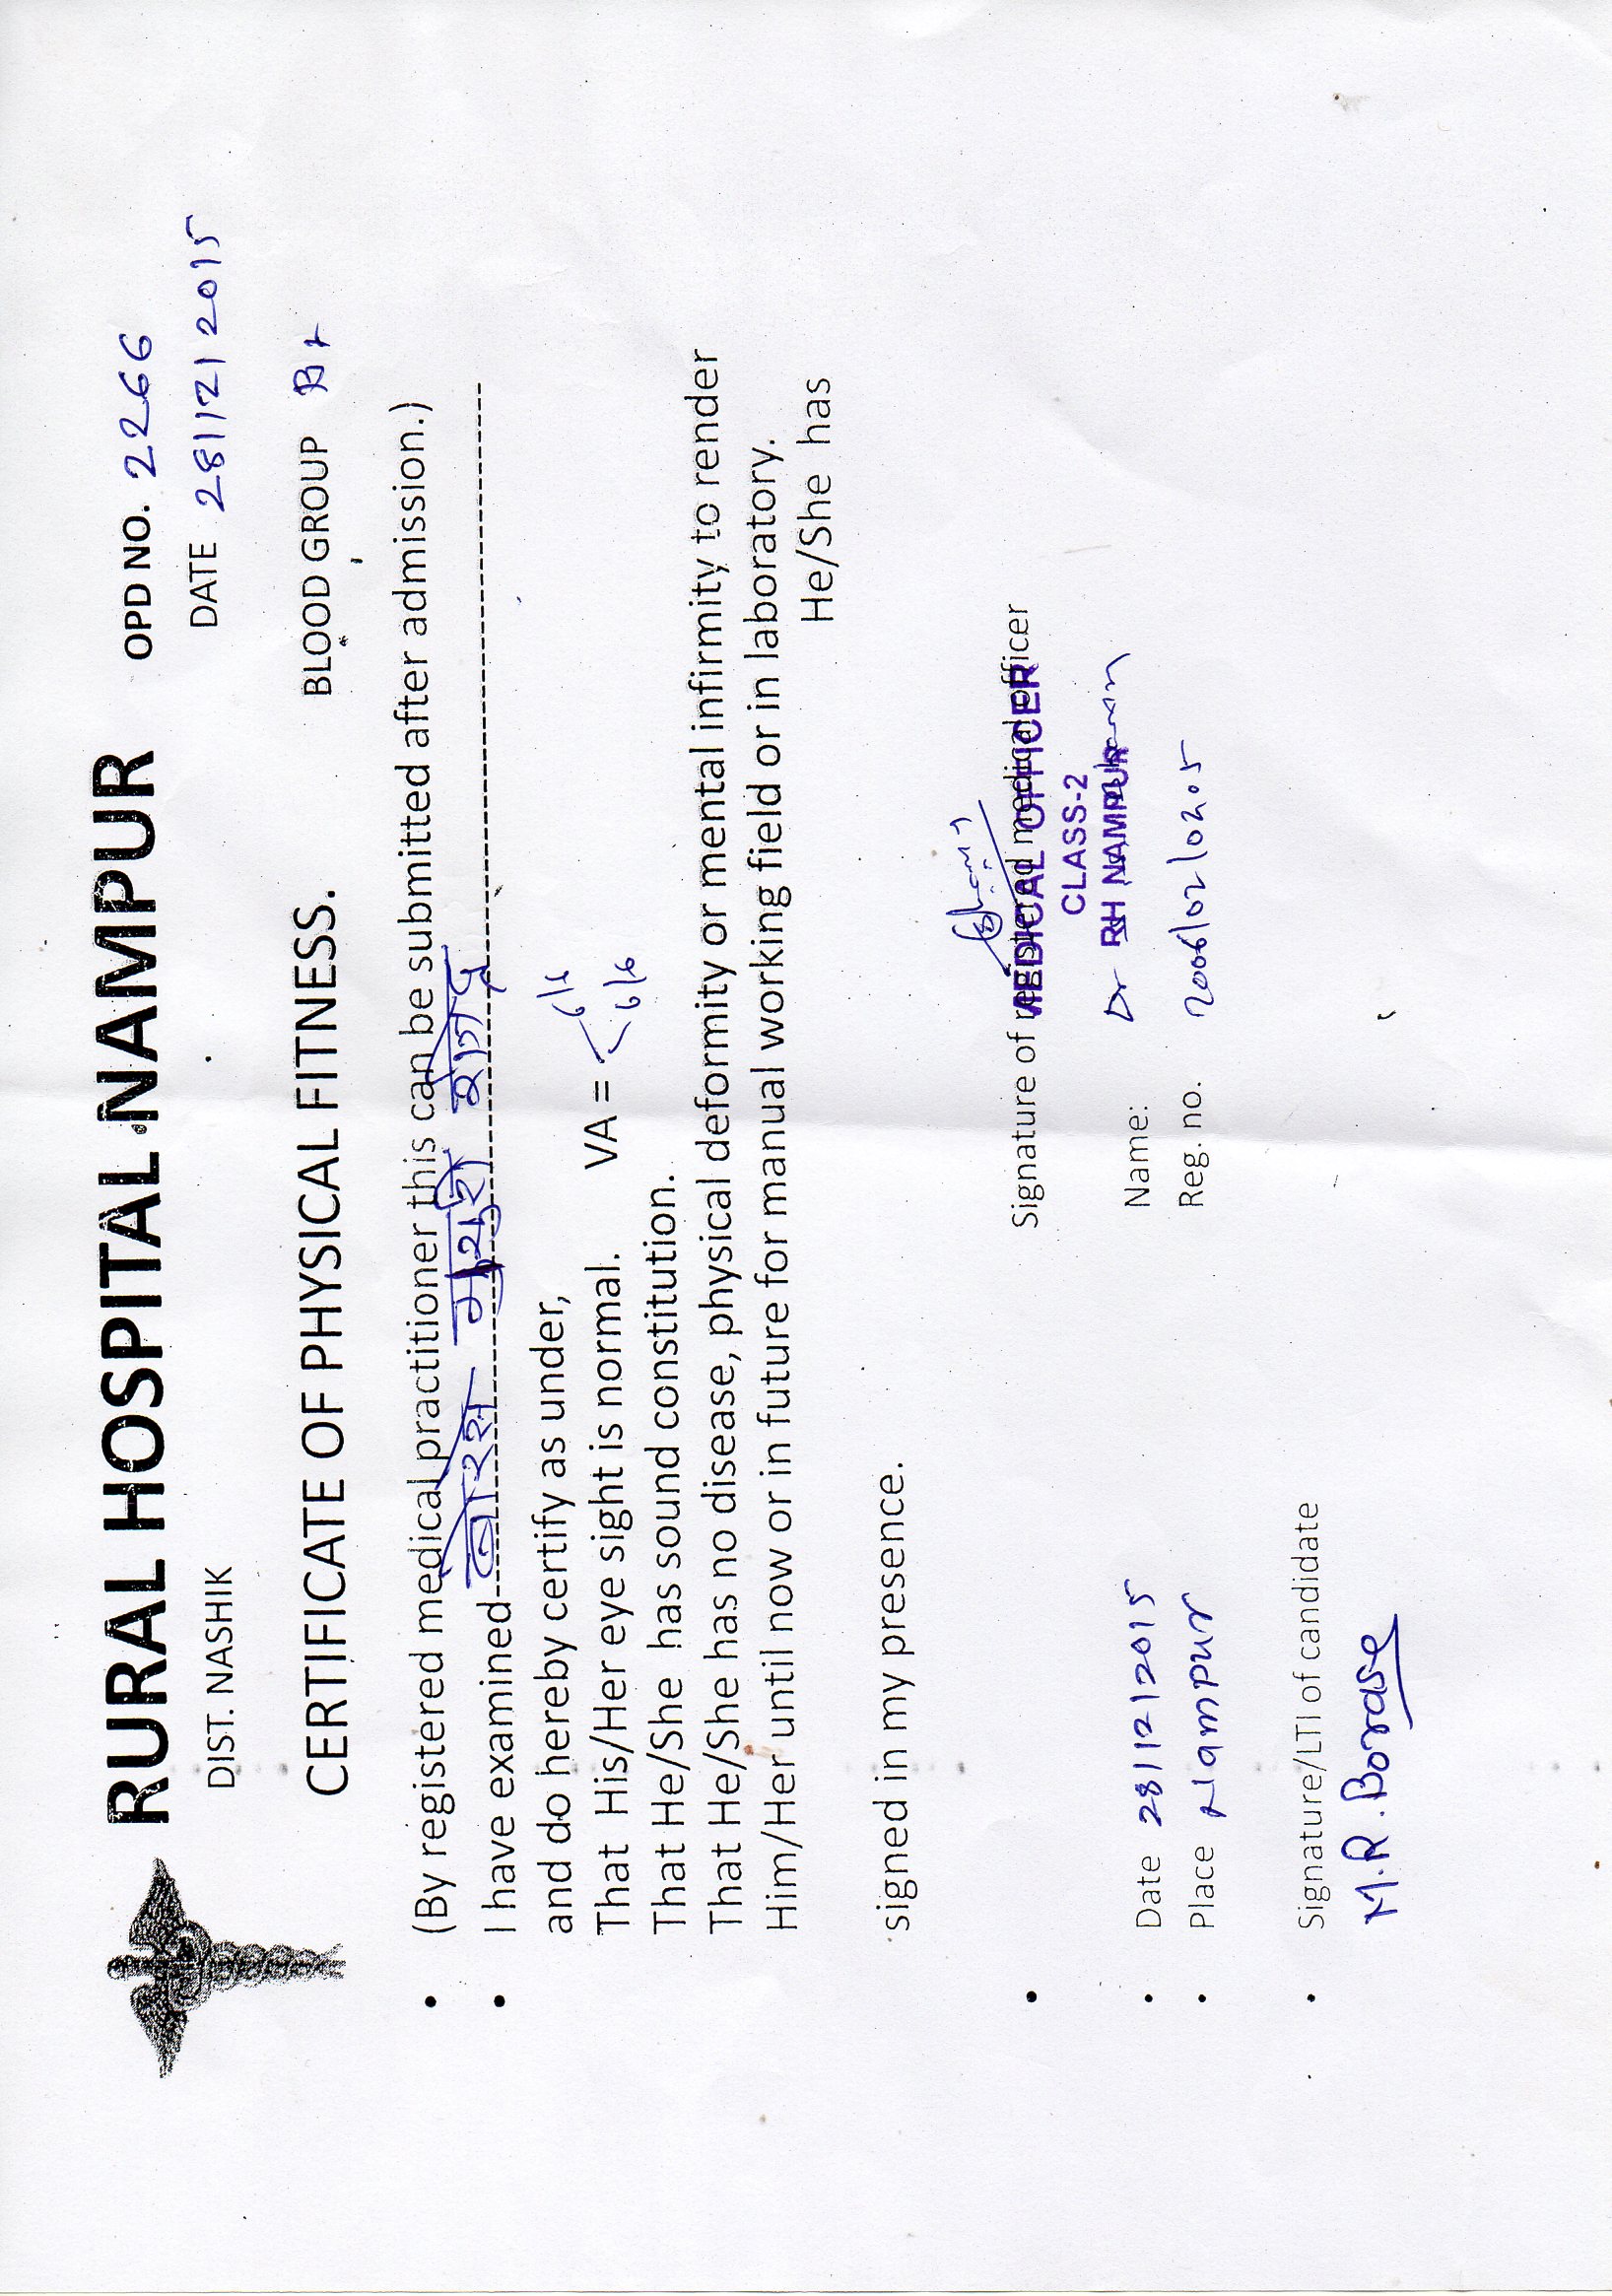 RURAL HOSPITAL NAMPUR OPD NO. 2266
DIST. NASHIK DATE 28/12/2015
CERTIFICATE OF PHYSICAL FITNESS. BLOOD GROUP B+
(By registered medical practitioner this can be submitted after admission.)
I have examined बोरसे मयुरी राजेंद्र
and do hereby certify as under,
That His/Her eye sight is normal. VA = 6/6 6/6
That He/She has sound constitution.
That He/She has no disease, physical deformity or mental infirmity to render
Him/Her until now or in future for manual working field or in laboratory.
He/She has
signed in my presence.
Signature of registered medical officer
MEDICAL OFFICER
CLASS-2
RH NAMPUR
Date 28/12/2015 Name: Dr
Place Nampur Reg. no. 2006/02/0205
Signature/LTI of candidate
M.R.Borase